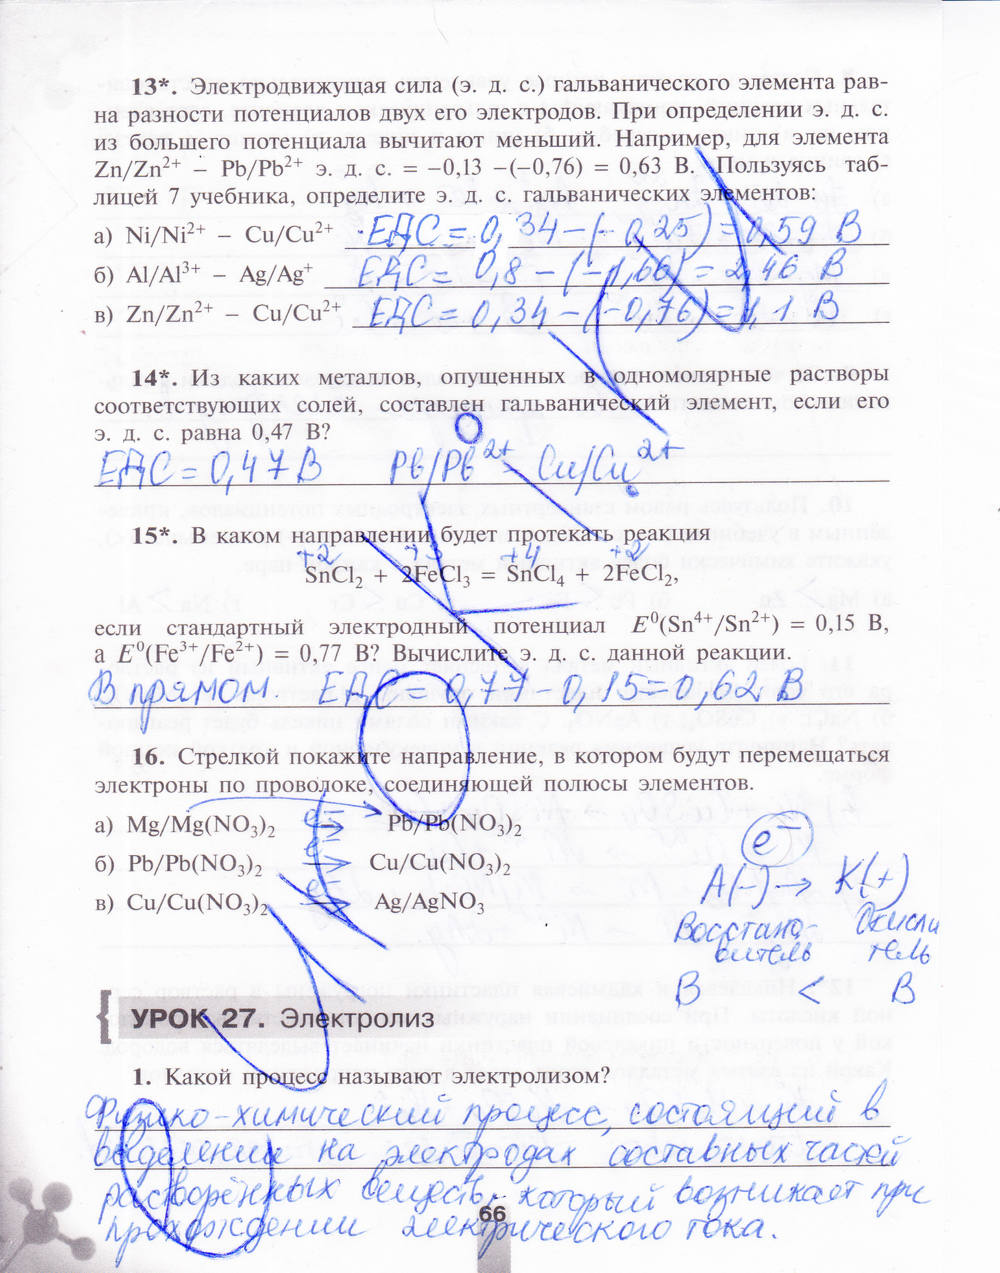 13*. Электродвижущая сила (э. д. с.) гальванического элемента рав-
на разности потенциалов двух его электродов. При определении э. д. с.
из большего потенциала вычитают меньший. Например, для элемента
Zn/Zn²⁺ – Pb/Pb²⁺ э. д. с. = –0,13 –(–0,76) = 0,63 В. Пользуясь таб-
лицей 7 учебника, определите э. д. с. гальванических элементов:
а) Ni/Ni²⁺ – Cu/Cu²⁺ ЕДС = 0,34 – (– 0,25) = 0,59 В
б) Al/Al³⁺ – Ag/Ag⁺ ЕДС = 0,8 – (– 1,66) = 2,46 В
в) Zn/Zn²⁺ – Cu/Cu²⁺ ЕДС = 0,34 – (– 0,76) = 1,1 В
14*. Из каких металлов, опущенных в одномолярные растворы
соответствующих солей, составлен гальванический элемент, если его
э. д. с. равна 0,47 В?
ЕДС = 0,47 В Pb/Pb²⁺ – Cu/Cu²⁺
15*. В каком направлении будет протекать реакция
+2 +3 +4 +2
SnCl₂ + 2FeCl₃ = SnCl₄ + 2FeCl₂,
если стандартный электродный потенциал E⁰(Sn⁴⁺/Sn²⁺) = 0,15 В,
а E⁰(Fe³⁺/Fe²⁺) = 0,77 В? Вычислите э. д. с. данной реакции.
В прямом. ЕДС = 0,77 – 0,15 = 0,62 В
16. Стрелкой покажите направление, в котором будут перемещаться
электроны по проволоке, соединяющей полюсы элементов.
а) Mg/Mg(NO₃)₂ e⁻ → Pb/Pb(NO₃)₂
б) Pb/Pb(NO₃)₂ e⁻ → Cu/Cu(NO₃)₂
в) Cu/Cu(NO₃)₂ e⁻ → Ag/AgNO₃
e⁻
А(–) → К(+)
Восстано- Окисли
витель тель
В < В
УРОК 27. Электролиз
1. Какой процесс называют электролизом?
Физико-химический процесс, состоящий в
выделении на электродах составных частей
растворённых веществ, который возникает при
прохождении электрического тока.
66